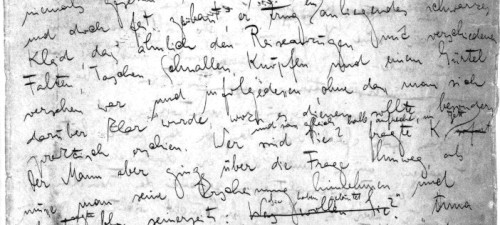 niemals
und doch fest gebaut, er trug anliegendes schwarzes
Kleid das ähnlich den Reiseanzügen mit verschiedenen
Falten, Taschen, Schnallen, Knöpfen und einem Gürtel
versehen war und infolgedessen ohne dass man sich
darüber klar wurde, wozu es dienen sollte besonders
und sass gleich halb aufrecht im Bett
praktisch erschien. Wer sind Sie? fragte K
Der Mann aber ging über die Frage hinweg, als
müsse man seine Erscheinung hinnehmen und
haben geläutet
seinerseits: Was wollen Sie?"